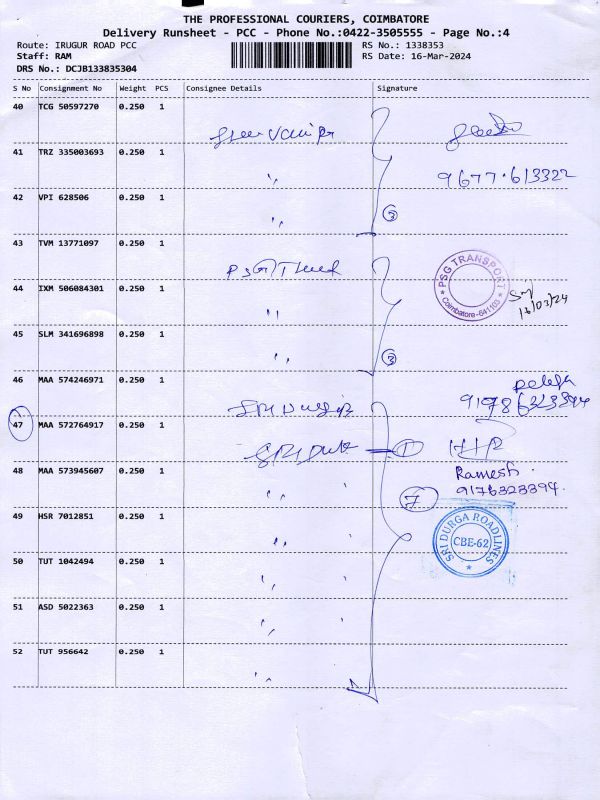 THE PROFESSIONAL COURIERS, COIMBATORE
Delivery Runsheet - PCC - Phone No.:0422-3505555 - Page No.:4
Route: IRUGUR ROAD PCC RS No.: 1338353
Staff: RAM RS Date: 16-Mar-2024
DRS No.: DCJB133835304
S No Consignment No Weight PCS Consignee Details Signature
40 TCG 50597270 0.250 1
41 TRZ 335003693 0.250 1 "
9677.613322
42 VPI 628506 0.250 1 "
3
43 TVM 13771097 0.250 1
PSG
PSG TRANSPORT
Coimbatore-641103
44 IXM 506084301 0.250 1 "
16/03/24
45 SLM 341696898 0.250 1 "
3
46 MAA 574246971 0.250 1
SRI
47 MAA 572764917 0.250 1
SRI 1
48 MAA 573945607 0.250 1 "
Ramesh.
9176323394.
7
49 HSR 7012851 0.250 1 "
SRI DURGA ROADLINES
CBE-62
50 TUT 1042494 0.250 1 "
51 ASD 5022363 0.250 1 "
52 TUT 956642 0.250 1 "